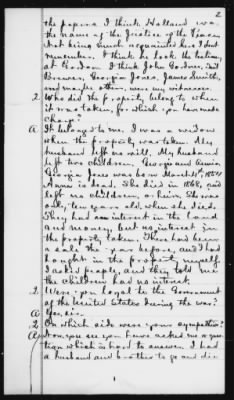 2
the papers I think Holland was
the name of the Justice of the Peace
Not being much acquainted here I dont
remember. I think he took the testimony,
at the door. I think John Gardner, and
Brewer, Georgia Jones, James Smith,
and maybe others, were my witnesses.
Q Who did the property belong to when
it was taken, for which you have made
charge?
A It belonged to me. I was a widow
when the property was taken. My
husband left no will. My husband
left two children, Georgia and Annie
Georgia Jones was born March 1854
Anna is dead. She died in 1868, and
left no children, or heirs. She was
only ten years old when she died.
They had an interest in the land
and money, but no interest in
the property taken. There had been
a sale the year before, and I had
bought in the property myself.
I asked people, and they told me
the children had no interest.
Q Were you loyal to the Government
of the United States during the war?
A Yes, sir.
Q On which side were your sympathies?
A Now you see you have asked me a ques-
tion which is hard to answer. I had
a husband and brother to go and die
1